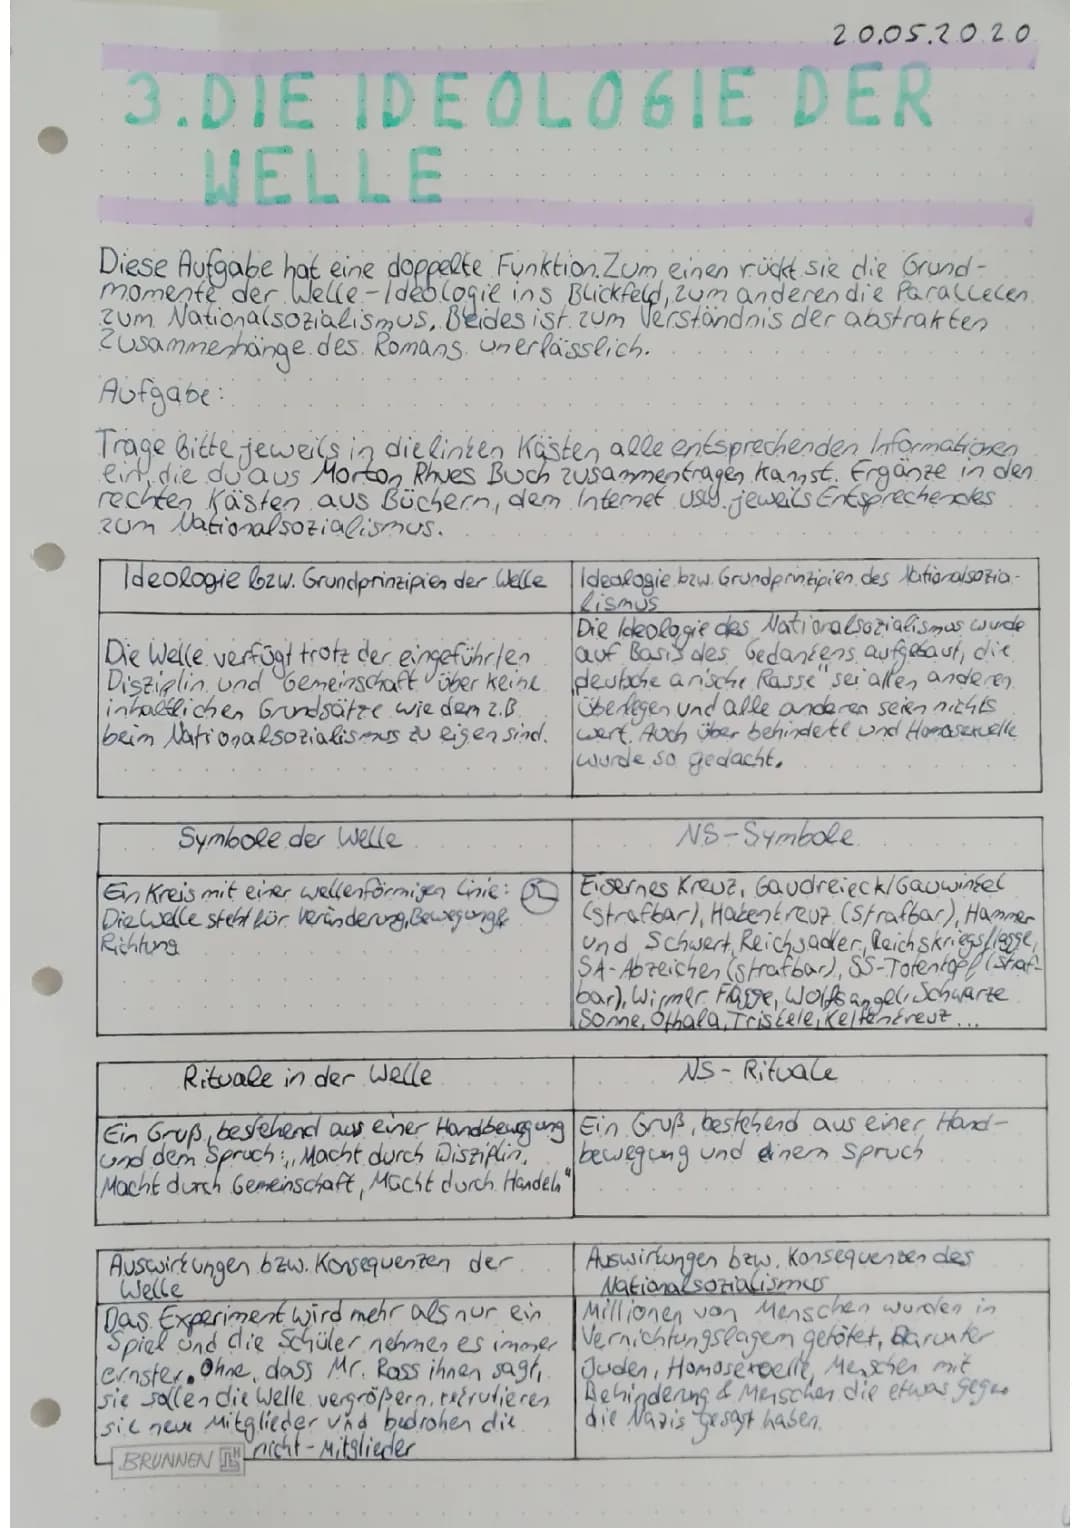 20.05.2020
3. DIE IDEOLOGIE DER
WELLE
Diese Aufgabe hat eine doppelte Funktion. Zum einen rückt sie die Grund-
momente der Welle-Ideologie ins Blickfeld, zum anderen die Parallelen
zum Nationalsozialismus. Beides ist zum Verständnis der abstrakten
Zusammenhänge des Romans unerlässlich.
Aufgabe:
Trage bitte jeweils in die linken Kästen alle entsprechenden Informationen
ein, die du aus Morton Rhues Buch zusammentragen kannst. Ergänze in den
rechten Kästen aus Büchern, dem Internet usw. jeweils Entsprechendes
zum Nationalsozialismus.
Ideologie bzw. Grundprinzipien der Welle
Die Welle verfügt trotz der eingeführten
Disziplin und Gemeinschaft über keine
inhaltlichen Grundsätze wie dem z.B.
beim Nationalsozialismus zu eigen sind.
Ideologie bzw. Grundprinzipien des Nationalsozia-
lismus
Die Ideologie des Nationalsozialismus wurde
auf Basis des Gedankens aufgebaut, die
„deutsche arische Rasse" sei allen anderen
überlegen und alle anderen seien nichts
wert. Auch über behinderte und Homosexuelle
wurde so gedacht.
Symbole der Welle
Ein Kreis mit einer wellenförmigen Linie:
Die Welle steht für Veränderung, Bewegung &
Richtung
NS-Symbole
Eisernes Kreuz, Gaudreieck/Gauwinkel
(strafbar), Hakenkreuz (strafbar), Hammer
und Schwert, Reichsadler, Reichskriegsflagge,
SA-Abzeichen (strafbar), SS-Totenkopf (straf-
bar), Wirmer Flagge, Wolfsangel, Schwarze
Sonne, Othala, Triskele, Keltenkreuz...
Rituale in der Welle
Ein Gruß, bestehend aus einer Handbewegung
und dem Spruch: „Macht durch Disziplin,
Macht durch Gemeinschaft, Macht durch Handeln"
NS-Rituale
Ein Gruß, bestehend aus einer Hand-
bewegung und einem Spruch
Auswirkungen bzw. Konsequenzen der
Welle
Das Experiment wird mehr als nur ein
Spiel und die Schüler nehmen es immer
ernster. Ohne, dass Mr. Ross ihnen sagt,
sie sollen die Welle vergrößern, rekrutieren
sie neue Mitglieder und bedrohen die
nicht-Mitglieder
Auswirkungen bzw. Konsequenzen des
Nationalsozialismus
Millionen von Menschen wurden in
Vernichtungslagern getötet, Darunter
Juden, Homosexuelle, Menschen mit
Behinderung & Menschen die etwas gegen
die Nazis gesagt haben.
BRUNNEN